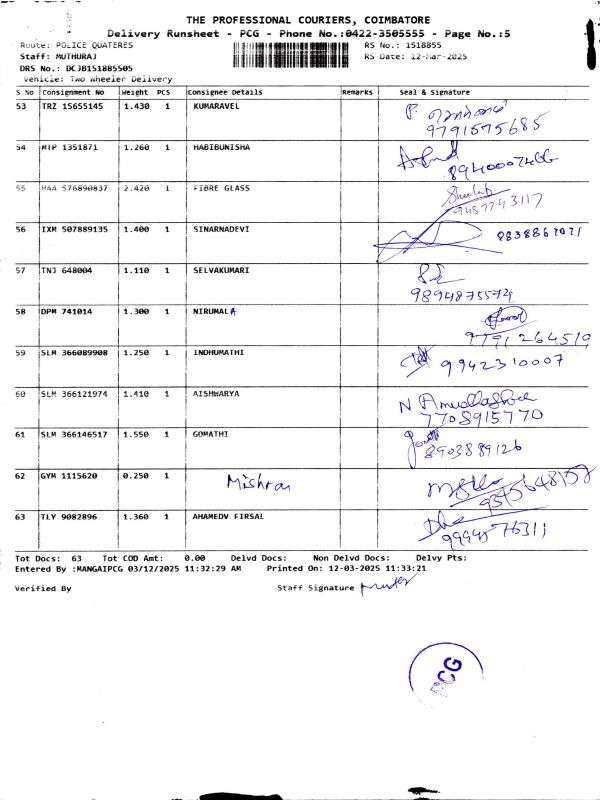 THE PROFESSIONAL COURIERS, COIMBATORE
Delivery Runsheet - PCG - Phone No.:0422-3505555 - Page No.:5
Route: POLICE QUATERES RS No.: 1518855
Staff: MUTHURAJ RS Date: 12-Mar-2025
DRS No.: DCJB151885505
Vehicle: Two Wheeler Delivery
S No Consignment No Weight PCS Consignee Details Remarks Seal & Signature
53 TRZ 15655145 1.430 1 KUMARAVEL
9791575685
54 MTP 1351871 1.260 1 HABIBUNISHA
55 MAA 576890837 2.420 1 FIBRE GLASS
9487743117
56 IXM 507889135 1.400 1 SINARNADEVI
57 TNJ 648004 1.110 1 SELVAKUMARI
9894875574
58 DPM 741014 1.300 1 NIRUMALA
7791264519
59 SLM 366089908 1.250 1 INDHUMATHI 9942310007
60 SLM 366121974 1.410 1 AISHWARYA N
7708915770
61 SLM 366146517 1.550 1 GOMATHI
8903889126
62 GYM 1115620 0.250 1
9345648157
63 TLY 9082896 1.360 1 AHAMEDV FIRSAL
Tot Docs: 63 Tot COD Amt: 0.00 Delvd Docs: Non Delvd Docs: Delvy Pts:
Entered By :MANGAIPCG 03/12/2025 11:32:29 AM Printed On: 12-03-2025 11:33:21
Verified By Staff Signature
PCG